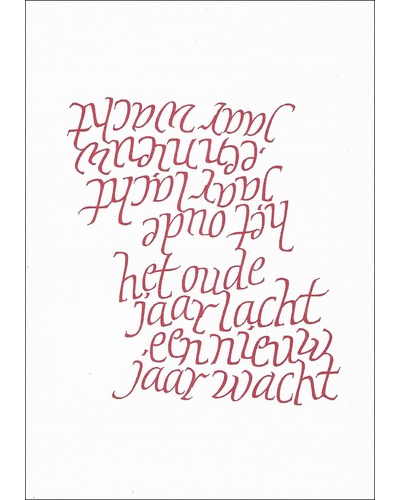 het oude
jaar lacht
een nieuw
jaar wacht
het oude
jaar lacht
een nieuw
jaar wacht